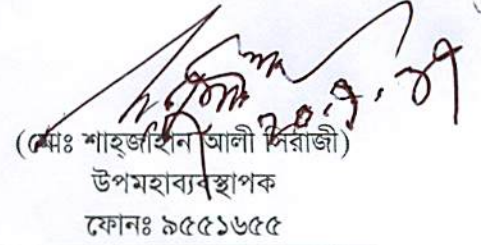 (মোঃ শাহ্জাহান আলী সিরাজী)
উপমহাব্যবস্থাপক
ফোনঃ ৯৫৫১৬৫৫